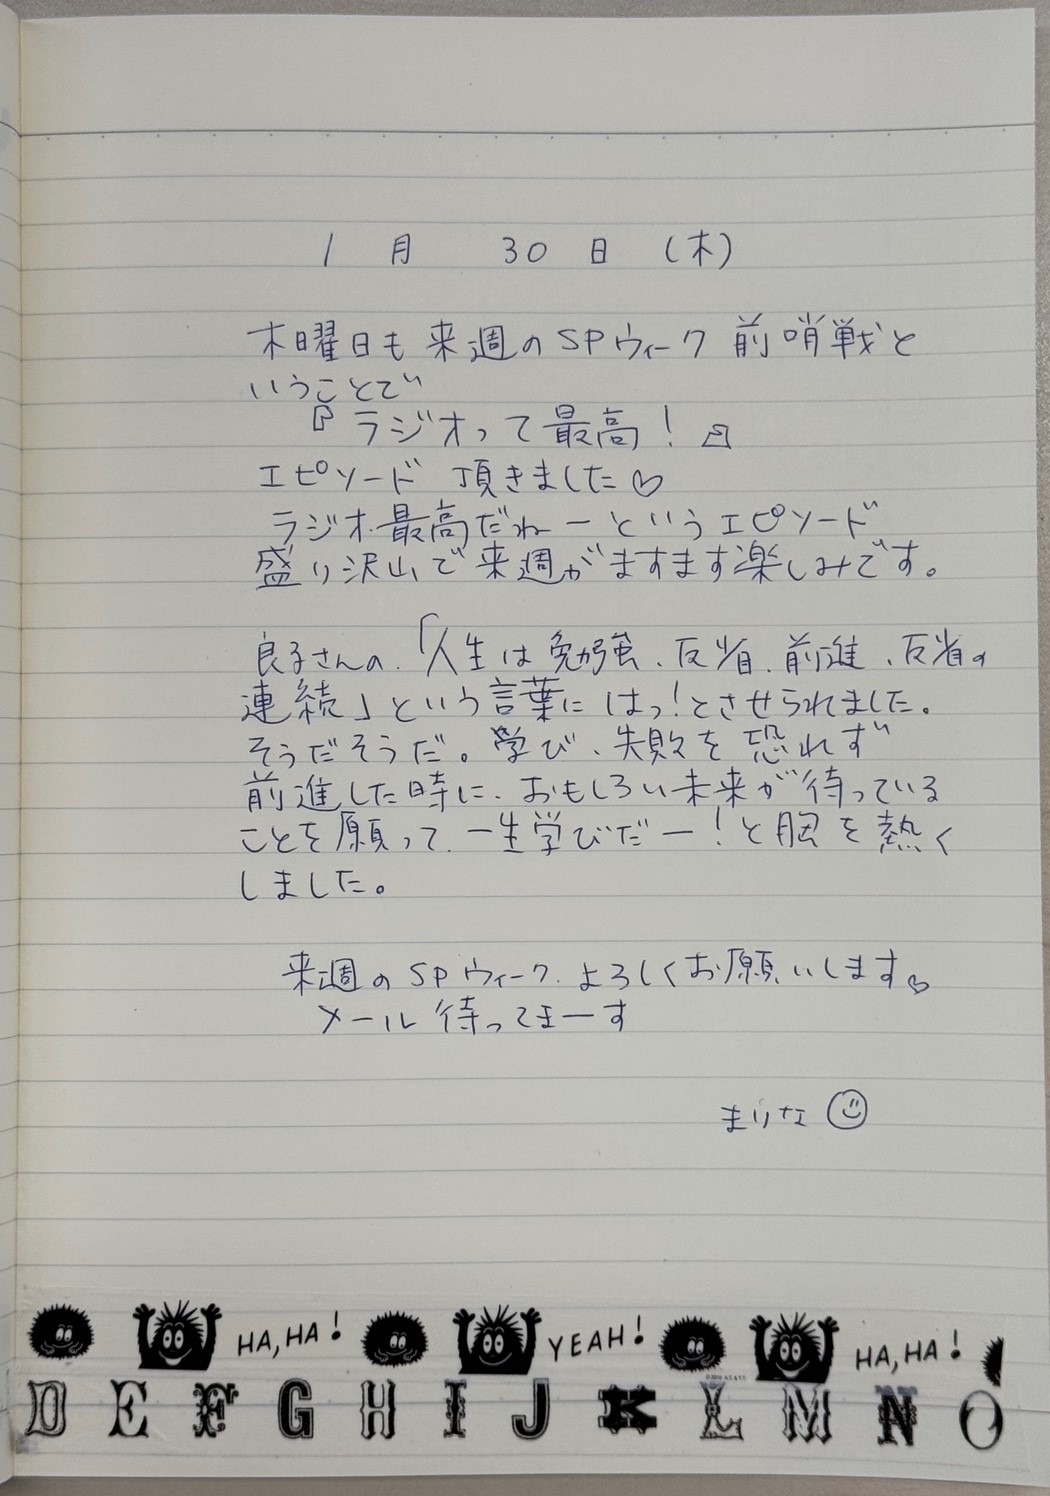 1月 30日 (木)
木曜日も来週のSPウィーク前哨戦と
いうことで
『ラジオって最高！』
エピソード 頂きました♡
ラジオ最高だねーというエピソード
盛り沢山で来週がますます楽しみです。
良子さんの、「人生は勉強、反省、前進、反省の
連続」という言葉にはっ!とさせられました。
そうだそうだ。学び、失敗を恐れず
前進した時に、おもしろい未来が待っている
ことを願って、一生学びだー!と胸を熱く
しました。
来週のSPウィーク、よろしくお願いします♡
メール待ってまーす
まりな ☺
HA, HA! YEAH! HA, HA!
D E F G H I J K L M N O